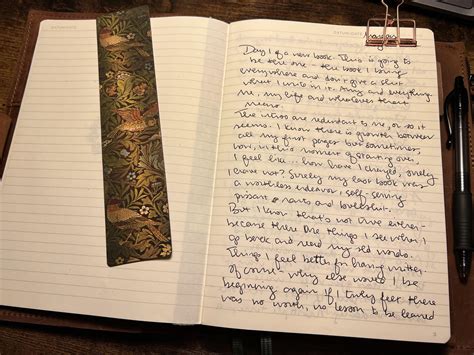 Day 1 of a new book. This is going to
be the one - the book I bring
everywhere and don't give a shit
what I write in it. Any and everything
me, my life and whatever that
means.
The intros are redundant to me, or so it
seems. I know there is growth between
all my first pages but sometimes
in this moment of starting over,
I feel like... how have I changed, surely
I have not? Surely my last book was
a worthless endeavor, self-serving
rants and bullshit.
But I know that's not true either-
because there are things I see when I
go back and read my old words.
Things I feel better for having written.
Of course - why else would I be
beginning again if I truly felt there
was no worth, no lesson to be learned